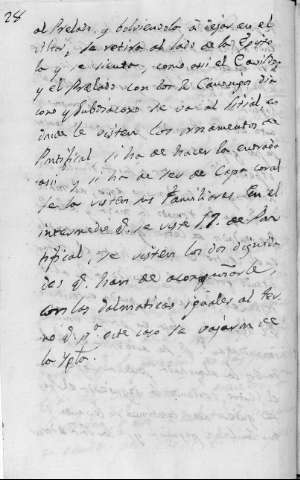 28
al Prelado, y bolviendola à dejar en el
Altar, se retira al lado de la Epísto
la y se sienta, como assi el Cavildo
y el Prelado con los 2 Canonigos Dia
cono y Subdiacono se va al sitial, en
donde le visten los ornamentos de
Pontifical si ha de hacer la entrada
assi y si ha de ser de Capa coral
se la visten sus familiares. En el
intermedio q. se viste S. I. de Pon
tifical, se visten los dos dignida
des q. han de acompañarle,
con las dalmaticas iguales al ter
no q. pa. este caso se vajaran de
la